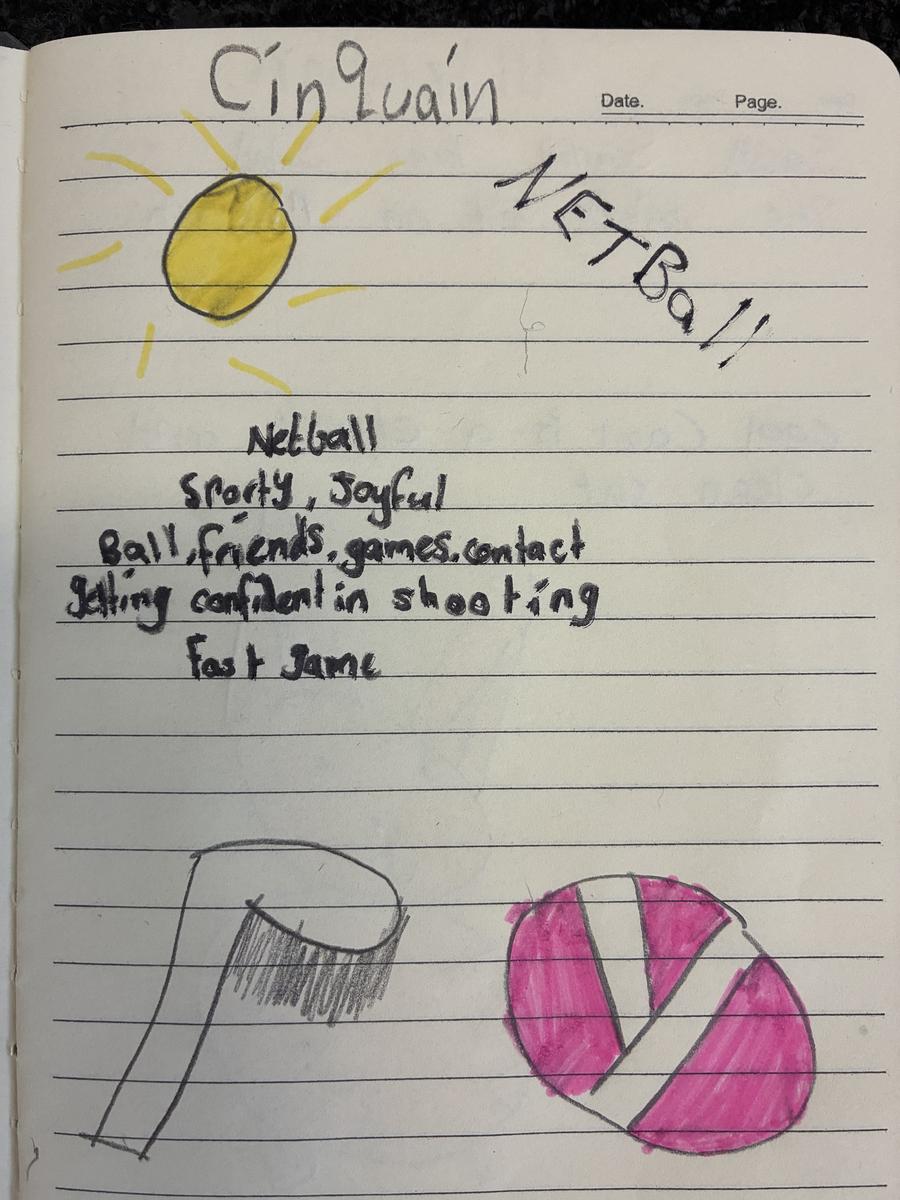 Cinquain
Date. Page.
NETBall
Netball
Sporty, Joyful
Ball, friends, games, contact
getting confident in shooting
Fast game